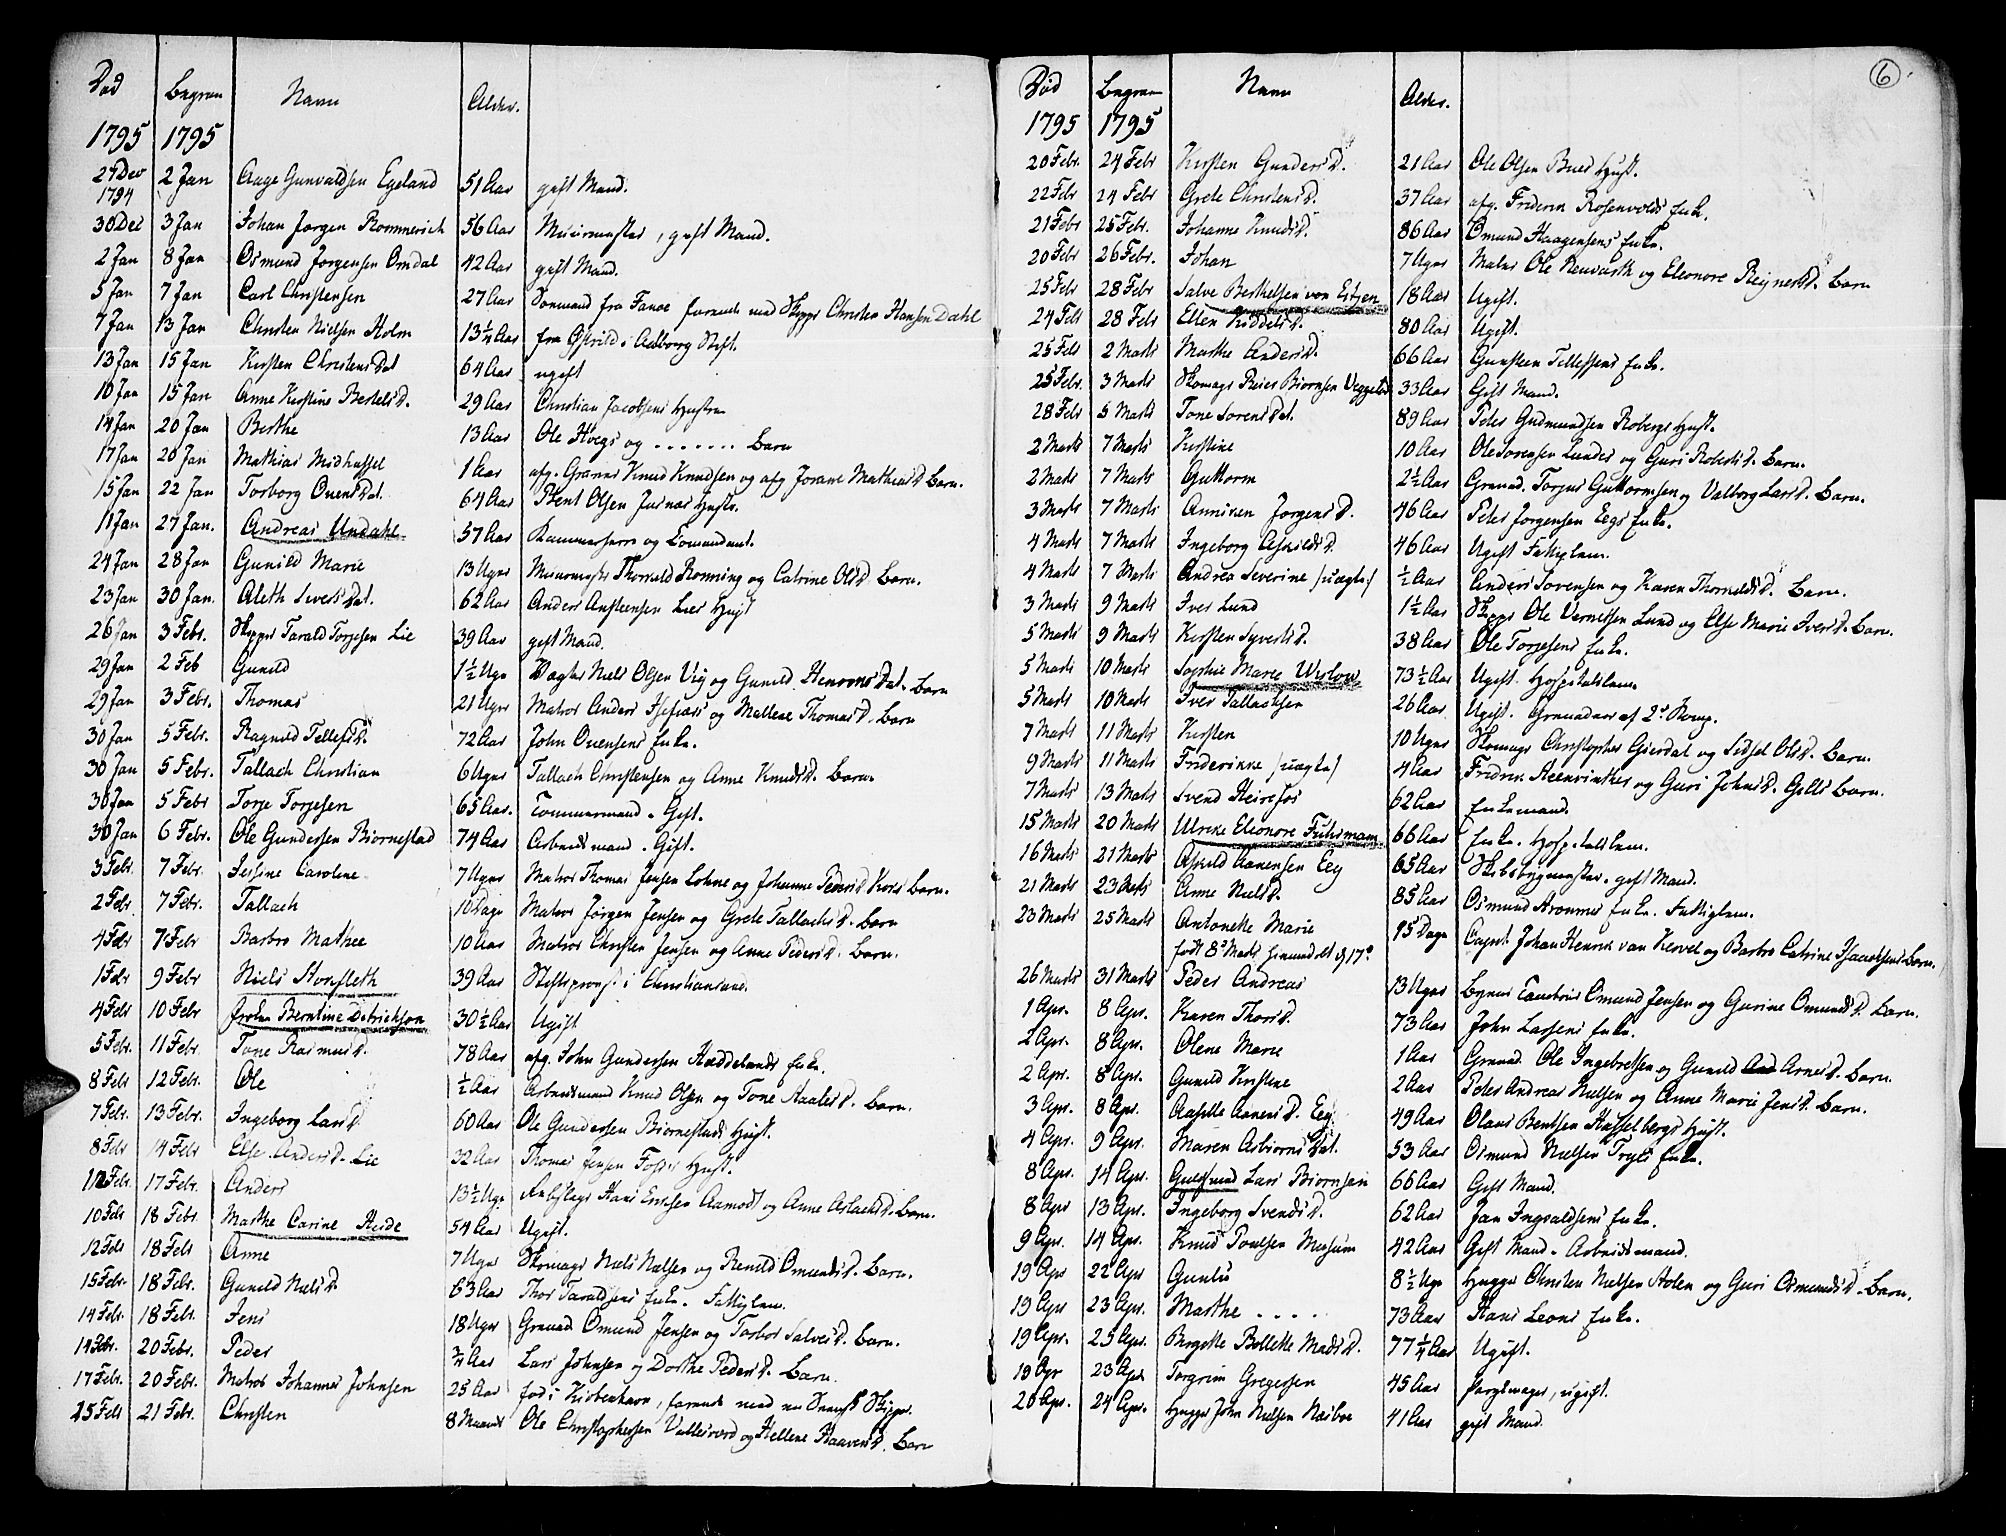 Død Begrav Navn Alder.
1795 1795
27 Dec 1794 2 Jan Aage Gunvaldsen Egeland 51 Aar gift Mand.
30 Dec 3 Jan Johan Jørgen Rommerich 56 Aar Muurmester, gift Mand.
2 Jan 8 Jan Osmund Jørgensen Omdal 42 Aar gift Mand.
5 Jan 7 Jan Carl Christensen 27 Aar Sømand fra Fanøe farende med Skipper Christen Hansen Dahl
7 Jan 13 Jan Christen Nielsen Holm 13 1/4 Aar fra Østrild i Aalborg Stift.
13 Jan 15 Jan Kirsten Christens Dat 64 Aar ugift
10 Jan 15 Jan Anne Kirstine Bertels D. 29 Aar Christian Jacobsens Hustru
14 Jan 20 Jan Berthe 13 Aar Ole Høegs og ....... Barn
17 Jan 20 Jan Mathias Midhassel 1 Aar afg. Granr Knud Knudsen og afg Jorane Mathias D. Barn.
15 Jan 22 Jan Torborg Ouens Dat. 64 Aar Bent Olsen Husts.
11 Jan 27 Jan. Andreas Undahl 57 Aar Kammerherre og Comandant.
24 Jan 28 Jan Gunild Marie 13 Uger Muurmester Thorruld Rønning og Catrine Ols D. Barn.
23 Jan 30 Jan. Aleth Sivers Dat. 62 Aar Anders Ansteensen Lies Hust
26 Jan 3 Febr. Skipper Tarald Torjesen Lie 39 Aar gift Mand.
29 Jan 2 Feb Gunild 1 1/2 Uge Vægter Niels Olsen Vig og Gunild Dat. Barn
29 Jan 3 Febr. Thomas 21 Uger Matros Anders og Mallene Thomas D. Barn
30 Jan 5 Febr. Ragnild Tellefs D. 72 Aar John Ouensens Enke.
30 Jan 5 Febr. Tallach Christian 6 Uger Tallach Christensen og Anne Knuds D. Barn.
30 Jan 5 Febr Torje Torjesen 65 Aar. Tømmermand. Gift.
30 Jan 6 Febr. Ole Gundersen Biørnestad 74 Aar Arbeidsmand. Gift.
3 Febr. 7 Febr. Jessine Caroline 7 Uger Matros Thomas Jensen Lohne og Johanne Peders D. Kors Barn.
2 Febr 7 Febr. Tallach 10 Dage Matros Jørgen Jensen og Grete Tallachs D. Barn
4 Febr 7 Febr Barbro Mathee 10 Aar Matros Christen Jensen og Anne Peders D. Barn.
1 Febr 9 Febr Niels Stoxfleth 39 Aar Stiftsprovst i Christiansand.
4 Febr 10 Febr Frøken Berntine Ditrickson 30 1/2 Aar Ugift
5 Febr. 11 Febr. Tone Rasmus D. 78 Aar afg. John Gundersen Haddelands Enke.
8 Febr 12 Febr. Ole 1/2 Aar Arbeidsmand Knud Olsen og Tone Aanles D. Barn.
7 Febr. 13 Febr. Ingeborg Lars D. 60 Aar Ole Gundersen Biørnestads Hust.
8 Febr 14 Febr Else Anders D. Lie 32 Aar Thomas Jensen Foss Hust.
12 Febr. 17 Febr. Anders 13 1/2 Uge Hans Ericsen Aamodt og Anne Aslachs D. Barn.
10 Febr 18 Febr. Marthe Carine Heide 54 Aar Ugift.
12 Febr 18 Febr Anne 7 Uger Skomager Niels Nielsen og Renild Omunds D. Barn.
15 Febr 18 Febr. Gunild Niels D. 63 Aar Thor Taraldsens Enke. Fattiglem.
14 Febr. 18 Febr. Jens 18 Uger Grenad. Omund Jensen og Torbor Salves D. Barn.
14 Febr. 20 Febr. Peder 3/4 Aar Lars Johnsen og Dorthe Peders D. Barn.
17 Febr. 20 Febr. Matros Johannes Johnsen 25 Aar fød i Kiøbenhavn, farende med en Dansk Skipper.
15 Febr 21 Febr. Christen 8 Maaned Ole Christophersen Vallesverd og Hellene Raavens D. Barn
6
Død Begrav Navn Alder.
1795 1795
20 Febr. 24 Febr Kirsten Gunders D. 21 Aar Ole Olsen Bues Hust.
22 Febr 24 Febr Grete Christens D. 37 Aar afg. Friderich Rosenvolds Enke.
21 Febr 25 Febr. Johanne Knuds D. 86 Aar Omund Haagensens Enke.
20 Febr 26 Febr. Johan 7 Uger Maler Ole Neuvarth og Eleonore Reyners D. Barn
25 Febr 28 Febr Salve Berthelsen von Eitzen 18 Aar Ugift.
24 Febr 28 Febr Ellen Kiddels D. 80 Aar Ugift.
25 Febr 2 Marts Marthe Anders D. 66 Aar Gunsteen Tellefsens Enke.
25 Febr. 3 Marts Skomager Reier Biørnsen Veggeland 33 Aar Gift Mand.
28 Febr 5 Marts Tone Sørens Dat. 89 Aar Peder Gudmundsen Robergs Hust.
2 Marts 7 Marts Kirstine 10 Aar Ole Sørensen Lundes og Guri Roberts D. Barn.
2 Marts 7 Marts Guttorm 2 1/2 Aar Grenad. Torjus Guttormsen og Valborg Lars D. Barn.
3 Marts 7 Marts Anniken Jørgens D. 46 Aar Peder Jørgensen Eegs Enke.
4 Marts 7 Marts Ingeborg Askilds D. 46 Aar Ugift Fattiglem.
4 Marts 7 Marts Andrea Severine /:uægte:/ 1/2 Aar Anders Sørensen og Karen Thorkilds D. Barn.
3 Marts 9 Marts Iver Lund 1 1/2 Aar Skipper Ole Verntsen Lund og Else Marie Ivers D. Barn.
5 Marts 9 Marts Kirsten Syverts D. 38 Aar Ole Torjesens Enke.
5 Marts 10 Marts Sophie Marie Wislow 73 1/2 Aar Ugift. Hospitalslem.
5 Marts 10 Marts Iver Tallachsen 26 Aar Ugift. Grenadeer af 2de Komp.
7 Marts 11 Marts Kirsten 10 Uger Skomager Christopher Gierdal og Sidsel Ols D. Barn.
9 Marts 11 Marts Friderikke /:uægte:/ 4 Aar Fridrik og Guri Johns D. Gills Barn.
7 Marts 13 Marts Svend Reiersøs 62 Aar Enkemand.
15 Marts 20 Marts Ulrike Eleonore Fuhrmann 66 Aar Enke. Hospitalslem.
16 Marts 21 Marts Askild Aanensen Eeg 65 Aar Skibsbygmester. gift Mand.
21 Marts 23 Marts Anne Niels D. 85 Aar Osmund Enke. Fattiglem.
23 Marts 25 Marts Antonette Marie 15 Dage Capit. Johan Henrik van Kervel og Barbro Catrine Isaachsens Barn.
født 8de Marts hiemmedøbt d 17de
26 Marts 31 Marts Peder Andreas 13 Uger Omund Jensen og Gurine Omunds D. Barn.
1 Apr. 8 Apr. Karen Thors D. 73 Aar John Larsens Enke.
2 Apr. 8 Apr. Olene Marie 1 Aar Grenad. Ole Ingebretsen og Gunild Arnes D. Barn.
2 Apr. 8 Apr. Gunild Kirstine 2 Aar Peder Andreas Nielsen og Anne Marie Jens D. Barn.
3 Apr. 8 Apr. Aaselle Aanens D. Eeg 49 Aar Olaus Bentsen Hasselbergs Hust.
4 Apr. 9 Apr. Maren Asbiørns Dat. 53 Aar Osmund Nielsen Trysts Enke.
8 Apr. 14 Apr. Guldsmed Lars Biørnsen 66 Aar Gift Mand.
8 Apr 13 Apr. Ingeborg Svends D. 62 Aar Jan Ingvaldsens Enke.
9 Apr. 14 Apr. Knud Poulsen Mosum 42 Aar Gift Mand. Arbeidsmand.
19 Apr 22 Apr Gunlu 8 1/2 Uge Hugger Christen Nielsen Holen og Guri Osmunds D. Barn.
19 Apr 23 Apr. Marthe ..... 73 Aar Hans Leons Enke.
19 Apr. 25 Apr. Birgitte Bollette Mads D. 77 1/4 Aar Ugift.
19 Apr 23 Apr. Torgrim Gregersen 45 Aar ugift.
20 Apr. 24 Apr. Hugger John Nielsen Næsboe 41 Aar gift Mand